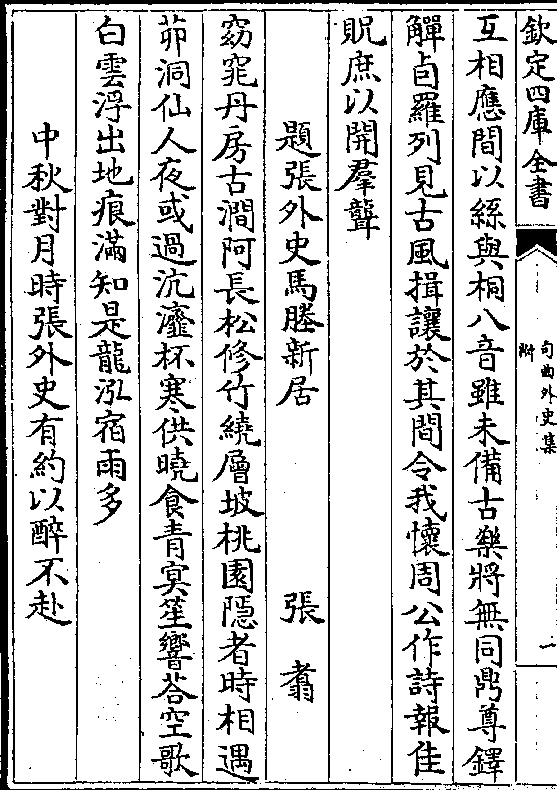 欽定四庫全書
句曲外史集
附
一
互相應間以絲與桐八音雖未備古樂將無同鼎尊鐸
觶卣羅列見古風揖讓於其間令我懷周公作詩報佳
貺庶以開羣聾
題張外史馬塍新居　張翥
窈窕丹房古澗阿長松修竹繞層坡桃園隱者時相遇
茆洞仙人夜或過沆瀣杯寒供曉食青冥笙響荅空歌
白雲浮出地痕滿知是龍泓宿雨多
中秋對月時張外史有約以醉不赴